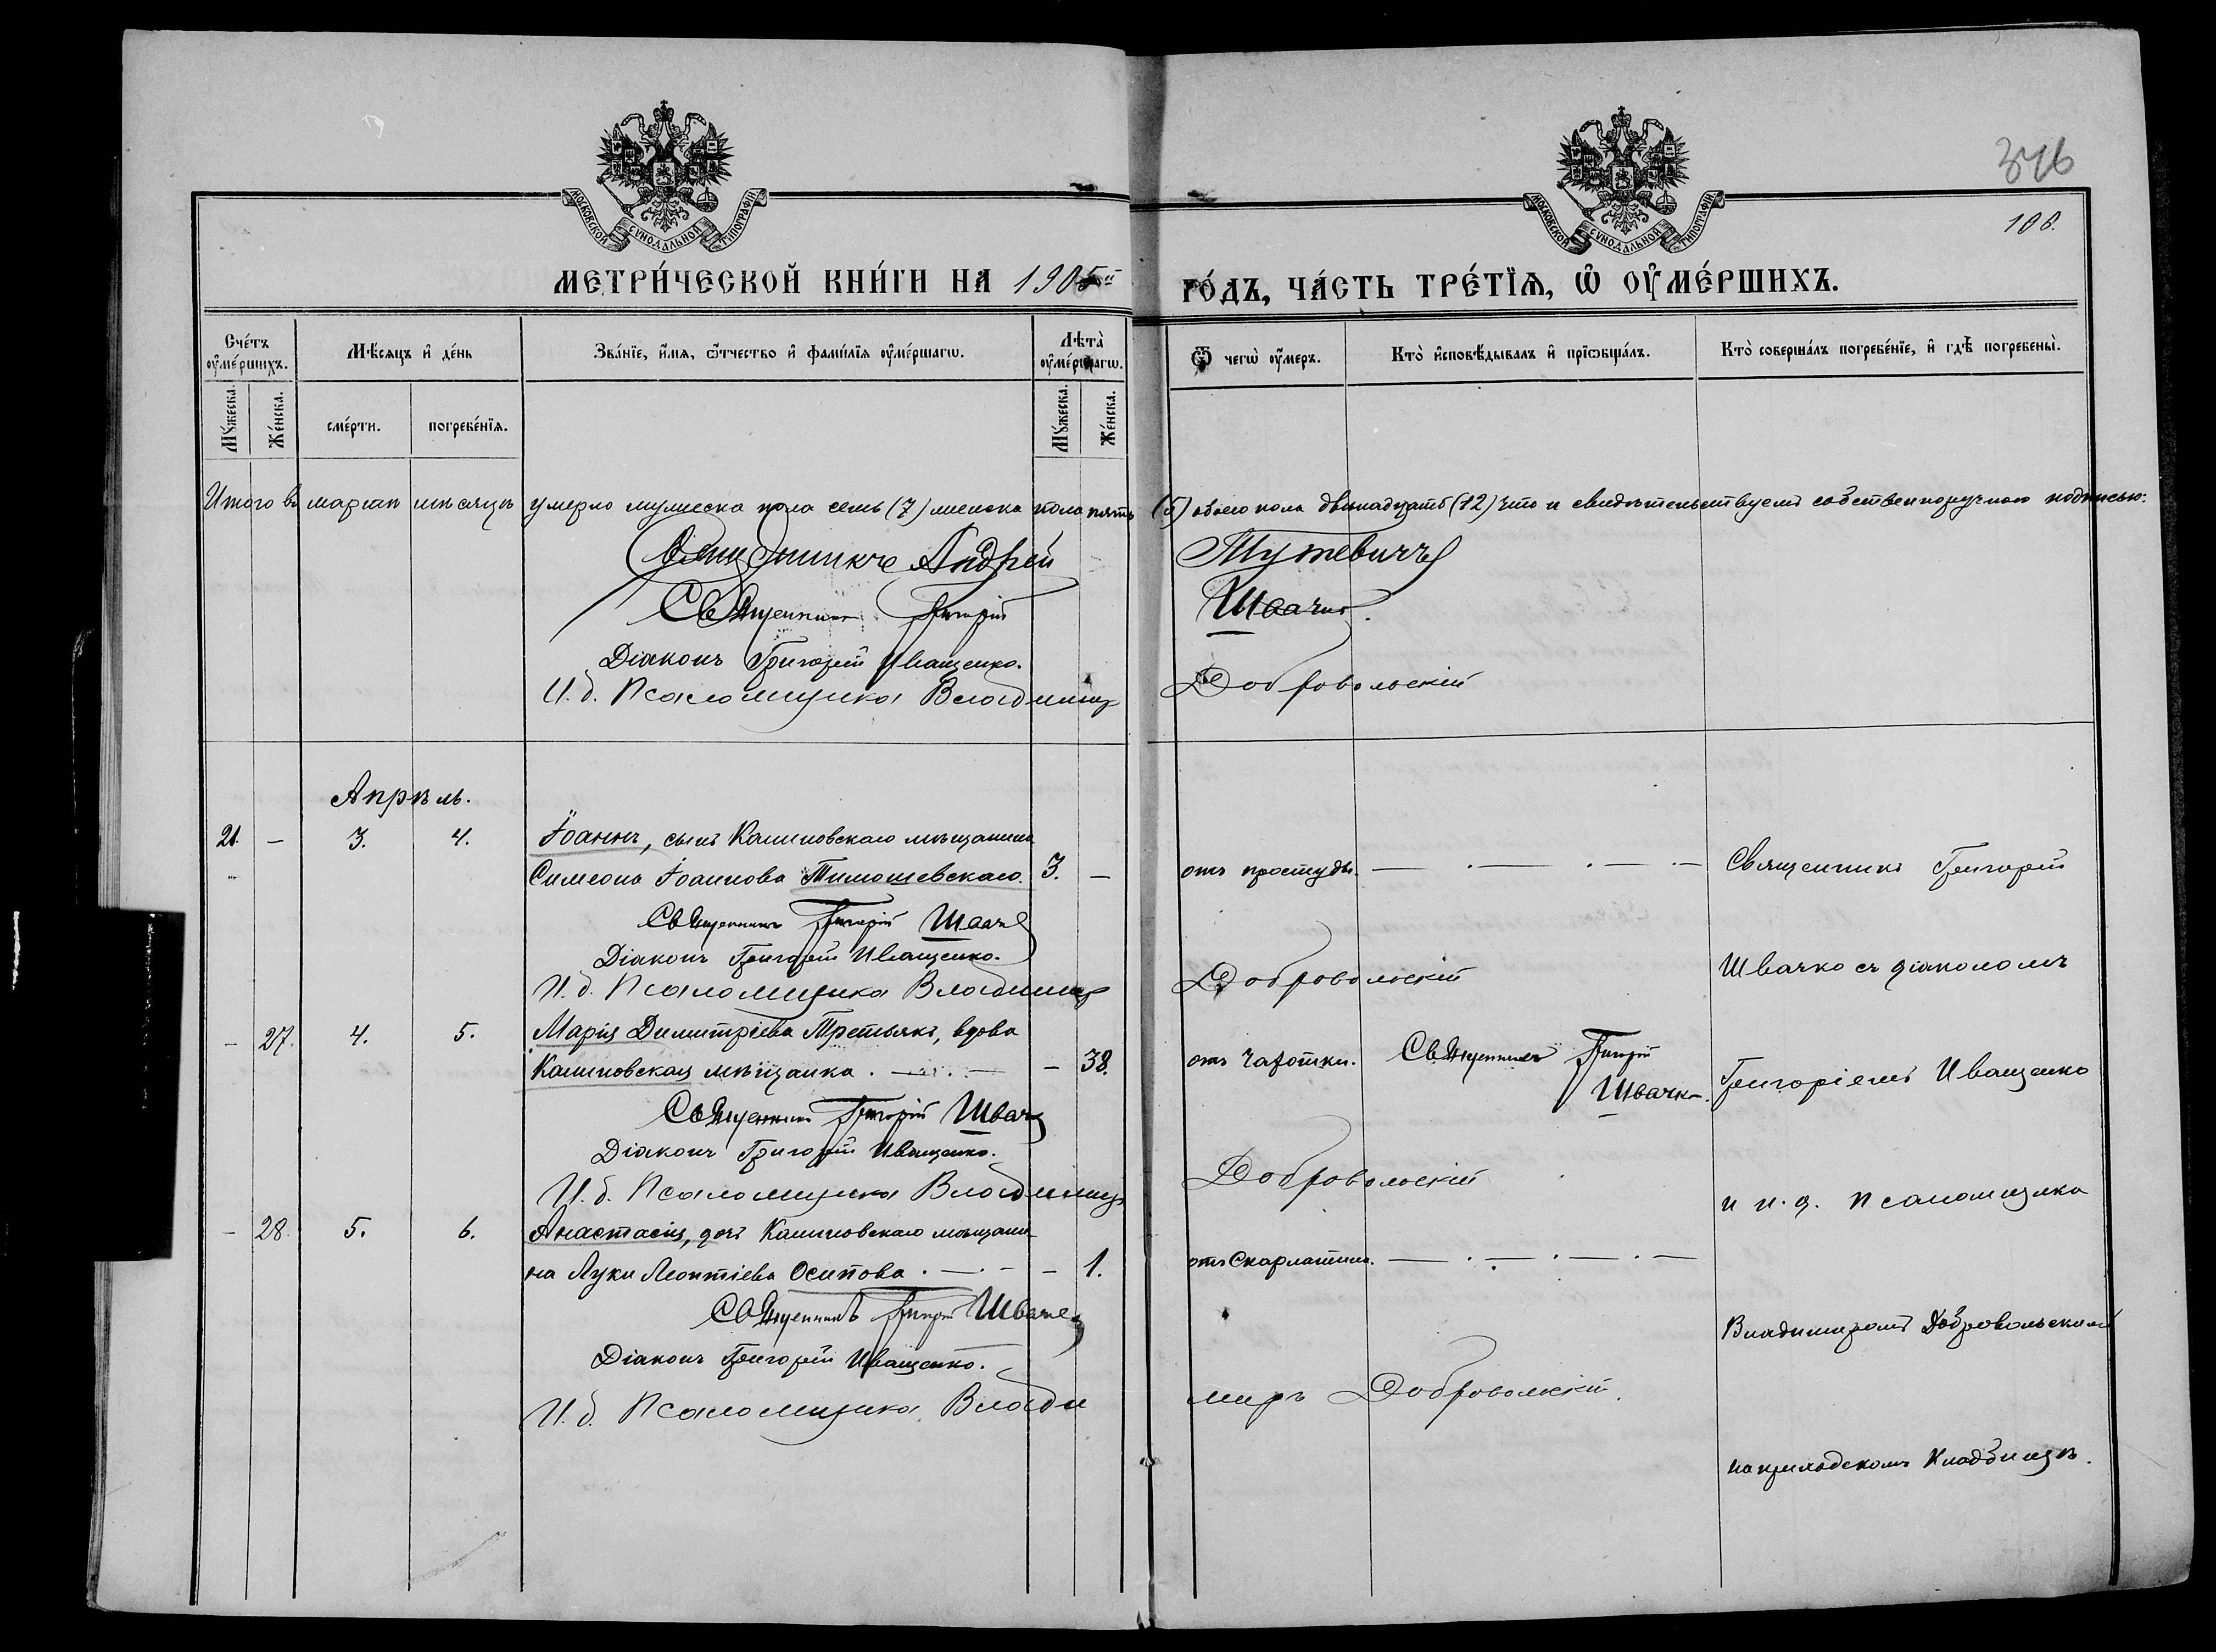 346
108.
МОСКОВСКОЙ СѴНОДАЛЬНОЙ ТИПОГРАФІИ
МОСКОВСКОЙ СѴНОДАЛЬНОЙ ТИПОГРАФІИ
МЕТРИ́ЧЕСКОЙ КНИ́ГИ НА 1905й ГО́ДЪ, ЧА́СТЬ ТРЕ́ТЇѦ, Ѡ ОУМЕ́РШИХЪ.
Сче́тъ оумéршихъ.
Мѣ́сяцъ и де́нь
Зва́нїе, и́мя, ѻ́тчество и фами́лїя оуме́ршагѡ.
Лѣта̀ оуме́ршагѡ.
Ѿ чегѡ̀ оу́меръ.
Кто̀ исповѣ́дывалъ и прїѡбща́лъ.
Кто̀ соверша́лъ погребе́нїе, и гдѣ̀ погребены̀.
Му́жеска.
Же́нска.
сме́рти.
погребе́нїя.
Му́жеска.
Же́нска.
Итого въ мартѣ мѣсяцѣ умерло мужеска пола семь (7) женска пола пять (5) обоего пола двѣнадцать (12) что и свидѣтельствуемъ собственноручною подписью:
Андрей Тутевичъ
Священникъ Григорій Швачко.
Діаконъ Григорій Иващенко.
И.д. Псаломщика Владимиръ Добровольскій
Апрѣль.
21. — 3. 4. Іоаннъ, сынъ Калиновскаго мѣщанина
Симеона Іоаннова Тимошевскаго. 3. — отъ простуды. — Священникъ Григорій
Священникъ Григорій Швачко
Діаконъ Григорій Иващенко.
Швачко съ діакономъ
И.д. Псаломщика Владимиръ Добровольскій
— 27. 4. 5. Марія Димитріева Третьякъ, вдова
Калиновская мѣщанка. — 38. отъ чахотки. Священникъ Григорій Швачко.
Григоріемъ Иващенко
Священникъ Григорій Швачко
Діаконъ Григорій Иващенко.
И.д. Псаломщика Владимиръ Добровольскій
и и.д. псаломщика
— 28. 5. 6. Анастасія, дочь Калиновскаго мѣщани-
на Луки Леонтіева Осипова. — 1. отъ скарлатины. —
Священникъ Григорій Швачко
Владимиромъ Добровольскимъ
Діаконъ Григорій Иващенко.
И.д. Псаломщика Влади миръ Добровольскій.
кладбищѣ.